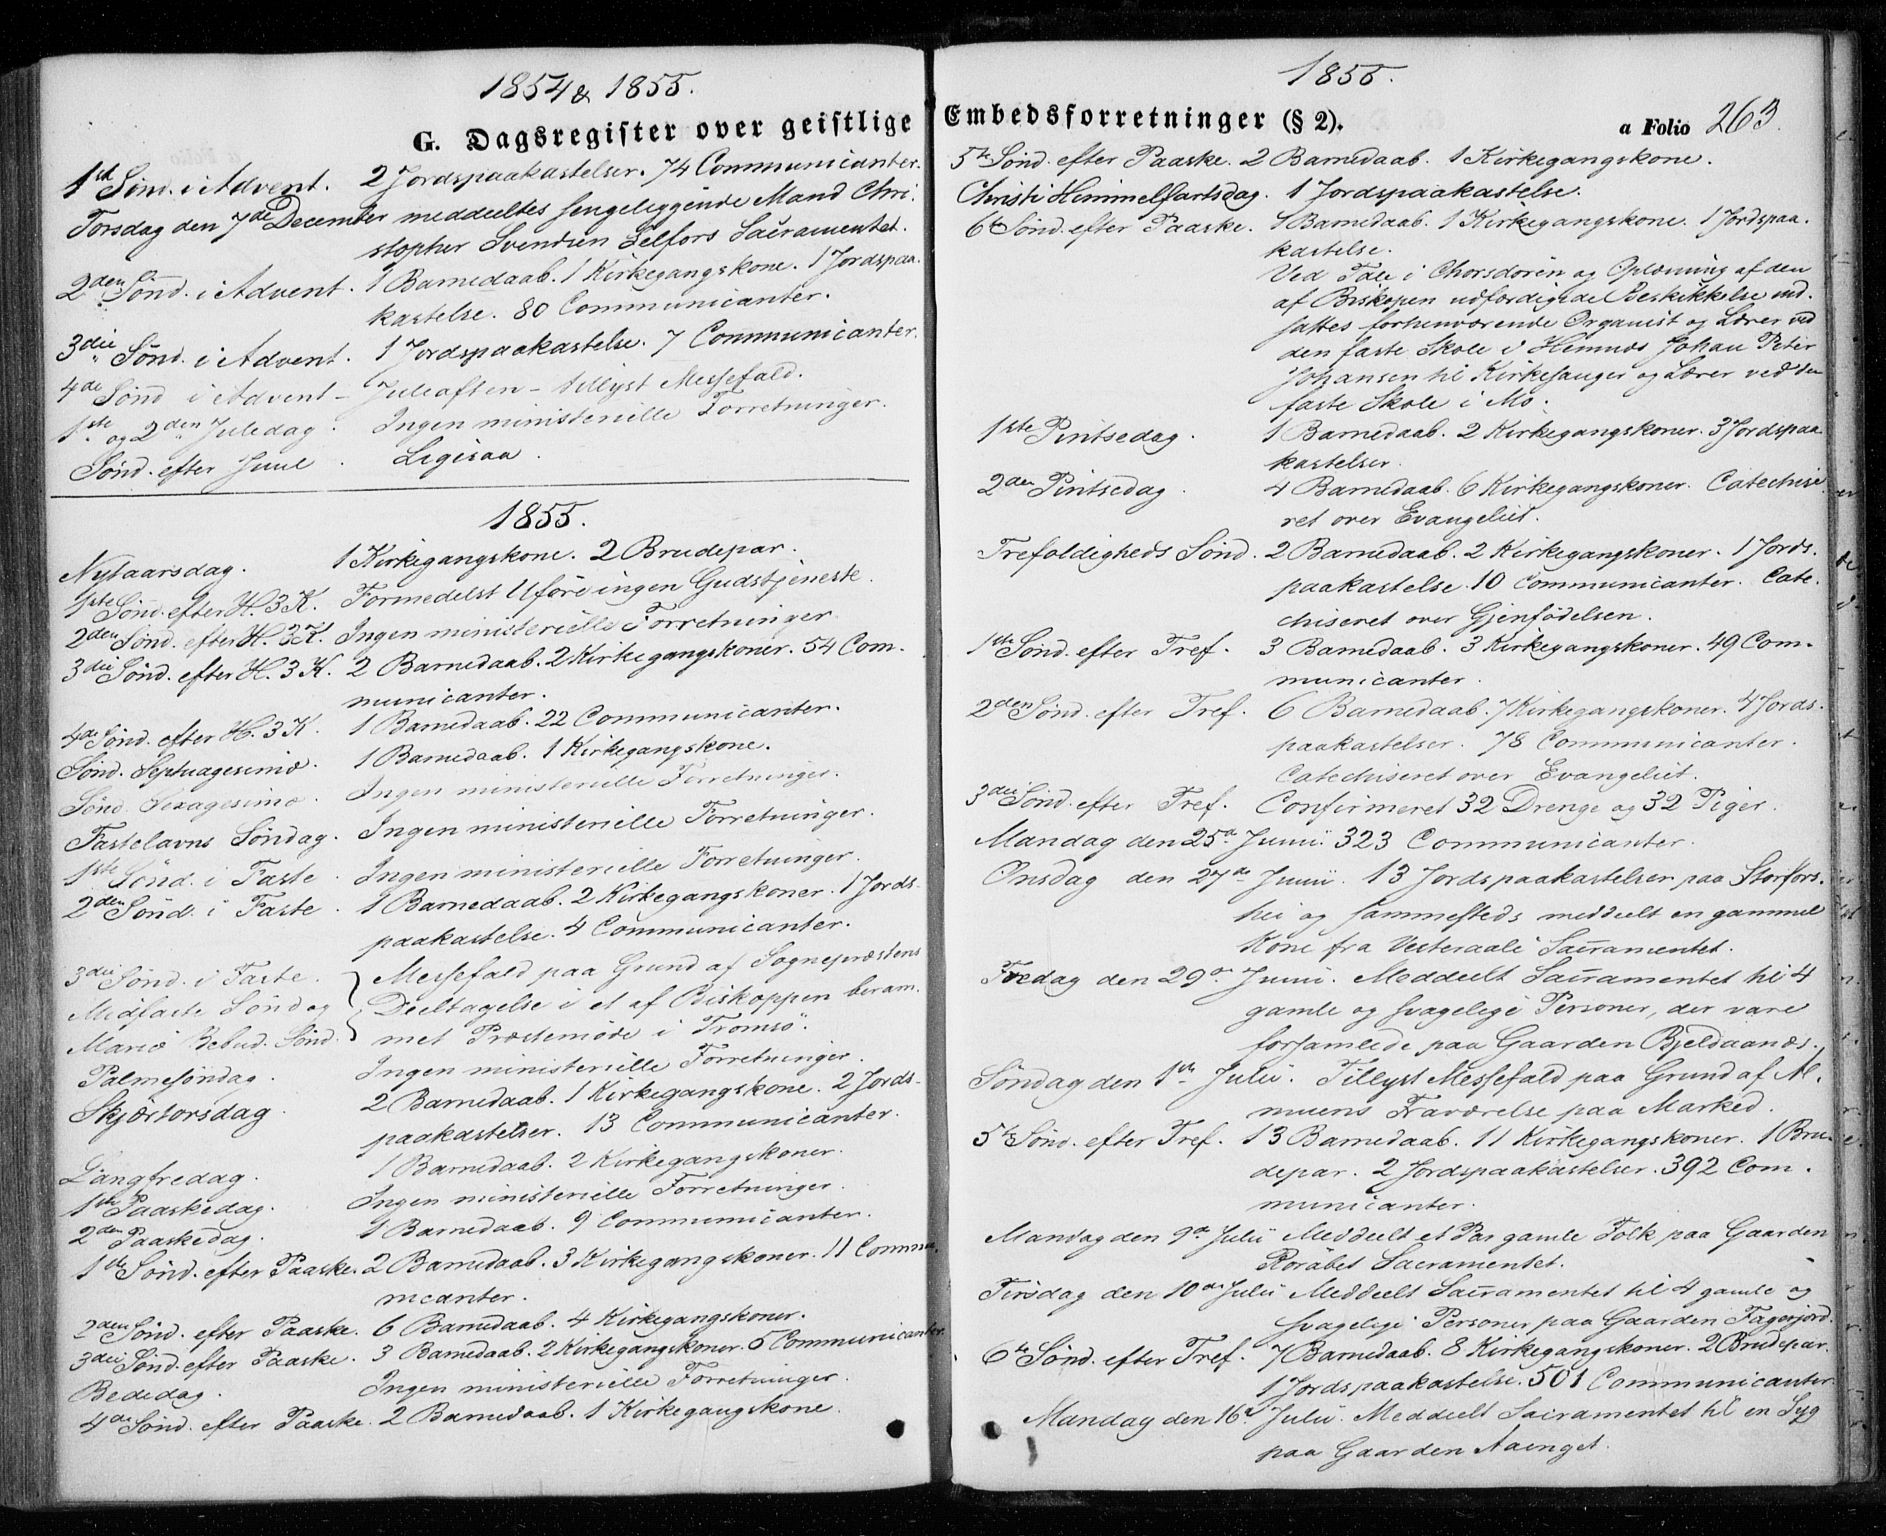 1854 & 1855.
G. Dagsregister over geistlige
1st Sönd. i Advent. 2 Jordspaakastelser. 74 Communicanter.
Torsdag den 7de December meddeeltes sengeliggende Mand Chri-
stopher Svendsen Selfors Sacramentet.
2den Sönd. i Advent. 1 Barnedaab. 1 Kirkegangskone. 1 Jordspaa-
kastelse. 80 Communicanter.
3die Sönd. i Advent. 1 Jordspaakastelse. 7 Communicanter.
4de Sönd i Advent - Juleaften - tillyst Messefald.
1ste og 2den Juledag. Ingen ministerielle Forretninger.
Sönd. efter Juul. Ligesaa.
1855.
Nytaarsdag. 1 Kirkegangskone. 2 Brudepar.
1ste Sönd. efter H. 3 K. Formedelst Uföre ingen Gudstjeneste.
2den Sönd. efter H. 3 K. Ingen ministerielle Forretninger
3die Sönd. efter H. 3 K. 2 Barnedaab. 2 Kirkegangskoner. 54 Com-
municanter.
4de Sönd. efter H. 3 K. 1 Barnedaab. 22 Communicanter.
Sönd. Septuagesimæ. 1 Barnedaab. 1 Kirkegangskone.
Sönd. Sexagesimæ. Ingen ministerielle Forretninger.
Fastelavns Söndag. Ingen ministerielle Forretninger.
1ste Sönd. i Faste. Ingen ministerielle Forretninger.
2den Sönd. i Faste. 1 Barnedaab. 2 Kirkegangskoner. 1 Jords-
paakastelse. 4 Communicanter.
3die Sönd. i Faste. Messefald paa Grund af Sognepræstens
Midfaste Söndag Deeltagelse i et af Biskoppen beram-
Mariæ Bebud. Sönd. met Præstemöde i Tromsö.
Palmesöndag. Ingen ministerielle Forretninger.
Skjærtorsdag. 2 Barnedaab. 1 Kirkegangskone. 2 Jords-
paakastelser. 13 Communicanter.
Langfredag. 1 Barnedaab. 2 Kirkegangskoner.
1ste Paaskedag. Ingen ministerielle Forretninger.
2den Paaskedag. 1 Barnedaab. 9 Communicanter.
1ste Sönd. efter Paaske. 2 Barnedaab. 3 Kirkegangskoner. 11 Commu-
nicanter.
2den Sönd. efter Paaske. 6 Barnedaab. 4 Kirkegangskoner.
3die Sönd. efter Paaske. 3 Barnedaab. 2 Kirkegangskoner. 5 Communicanter.
Bededag. Ingen ministerielle Forretninger.
4de Sönd. efter Paaske. 2 Barnedaab. 1 Kirkegangskone.
1855.
Embedsforretninger (§ 2). a Folio 263.
5te Sönd. efter Paaske. 2 Barnedaab. 1 Kirkegangskone.
Christi Himmelfartsdag. 1 Jordspaakastelse.
6te Sönd. efter Paaske. 1 Barnedaab. 1 Kirkegangskone. 1 Jordspaa-
kastelse.
Ved Tale i Chorsdören og Oplæsning af den
af Biskopen udfærdigede Beskikkelse ind-
sattes forhenværende Organist og Lærer ved
den faste Skole i Hemnæs Johan Peter
Johansen til Kirkesanger og Lærer ved den
faste Skole i Mo.
1ste Pintsedag. 1 Barnedaab. 2 Kirkegangskoner. 3 Jordspaa-
kastelser.
2den Pintsedag. 4 Barnedaab. 6 Kirkegangskoner. Catechise-
ret over Evangeliet.
Trefoldigheds Sönd. 2 Barnedaab. 2 Kirkegangskoner. 1 Jords-
paakastelse. 10 Communicanter. Cate-
chiseret over Gjenfödelsen.
1ste Sönd. efter Tref. 3 Barnedaab. 3 Kirkegangskoner. 49 Com-
municanter.
2den Sönd. efter Tref. 6 Barnedaab. 7 Kirkegangskoner. 4 Jords-
paakastelser. 78 Communicanter.
Catechiseret over Evangeliet.
3die Sönd. efter Tref. Confirmeret 32 Drenge og 32 Piger.
Mandag den 25de Junii. 323 Communicanter.
Onsdag den 27de Junii. 13 Jordspaakastelser paa Storfors-
hei og sammesteds meddeelt en gammel
Kone fra Vesteraali Sacramentet.
Fredag den 29de Junii. Meddeelt Sacramentet til 4
gamle og svagelige Personer, der vare
forsamlede paa Gaarden Bjeldaanæs.
Söndag den 1ste Julii. Tillyst Messefald paa Grund af Al-
muens Fraværelse paa Marked.
5te Sönd. efter Tref. 13 Barnedaab. 11 Kirkegangskoner. 1 Bru-
depar. 2 Jordspaakastelser. 392 Com-
municanter.
Mandag den 9de Julii Meddeelt et Par gamle Folk paa Gaarden
Roråbet Sacramentet.
Tirsdag den 10de Julii Meddeelt Sacramentet til 4 gamle og
svagelige Personer paa Gaarden Fagerjord.
6te Sönd. efter Tref. 7 Barnedaab. 8 Kirkegangskoner. 2 Brudepar.
1 Jordspaakastelse. 501 Communicanter
Mandag den 16de Julii. Meddeelt Sacramentet til en Syg
paa Gaarden Aaenget.